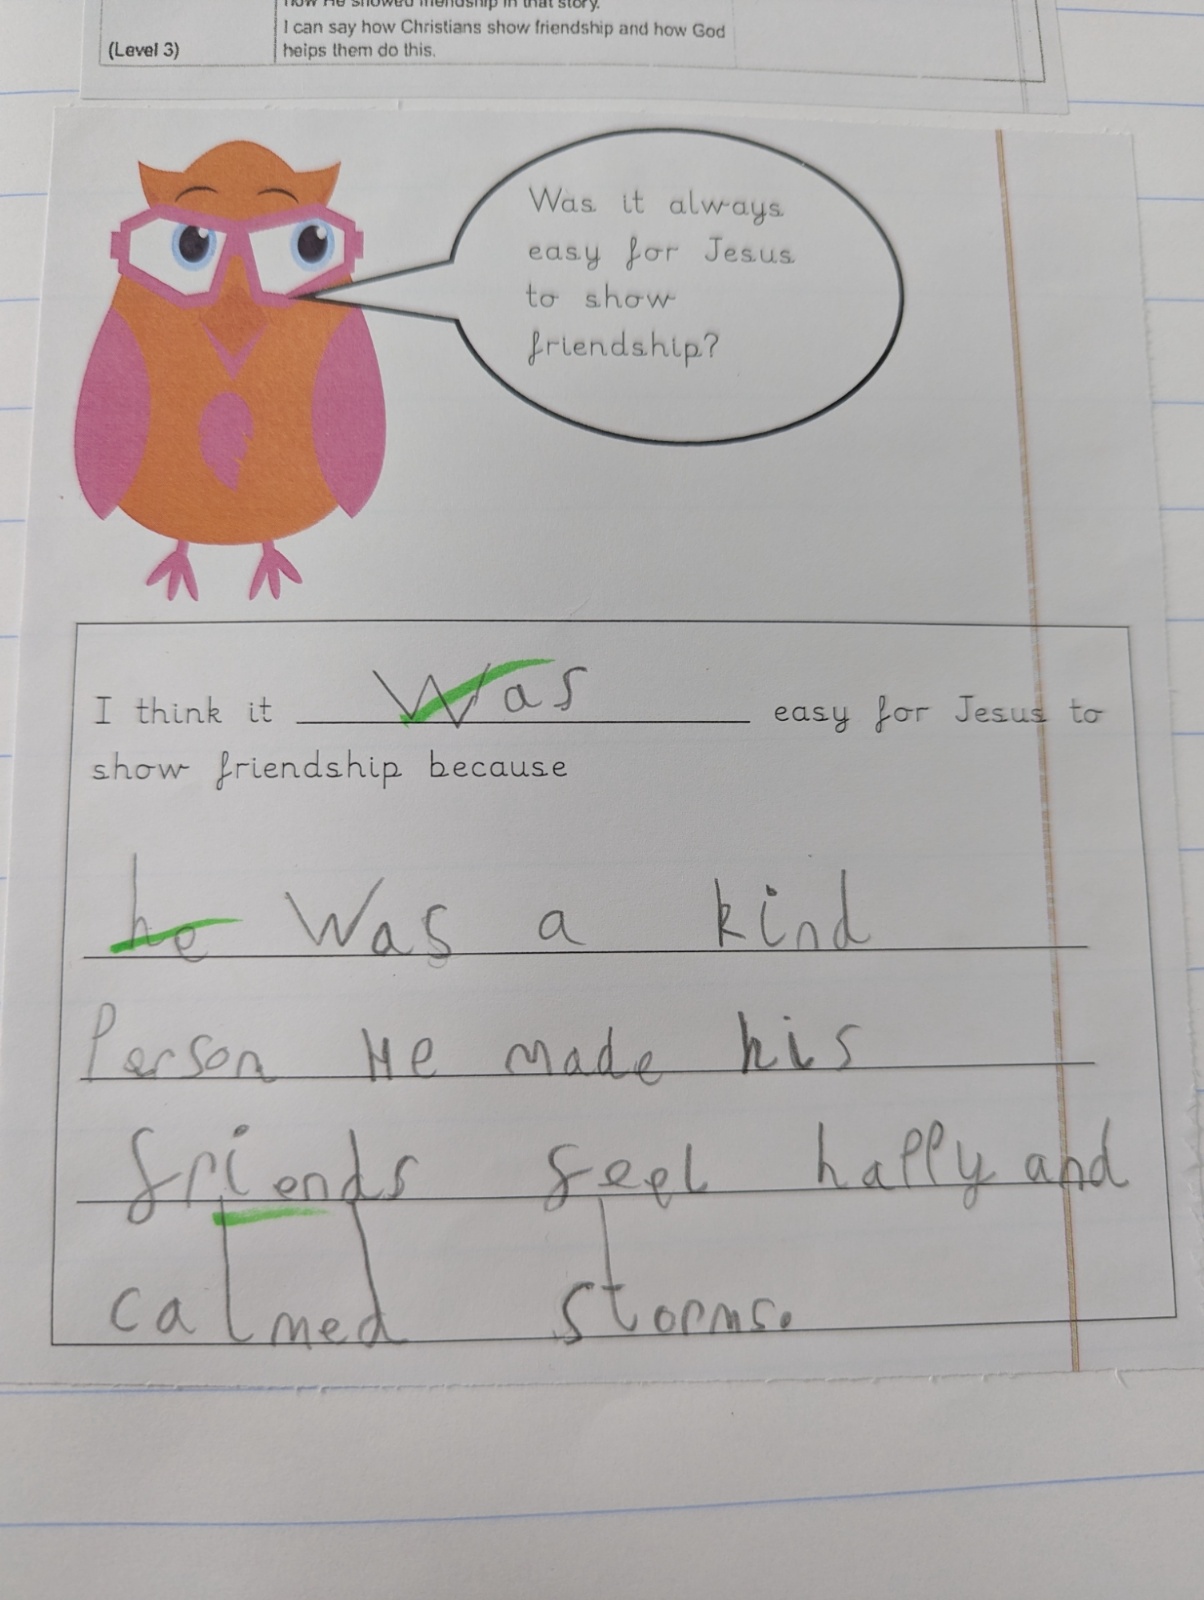 how He showed friendship in that story.
I can say how Christians show friendship and how God
(Level 3) helps them do this.
Was it always
easy for Jesus
to show
friendship?
I think it Was easy for Jesus to
show friendship because
he Was a kind
Person He made his
friends feel happy and
calmed storms.